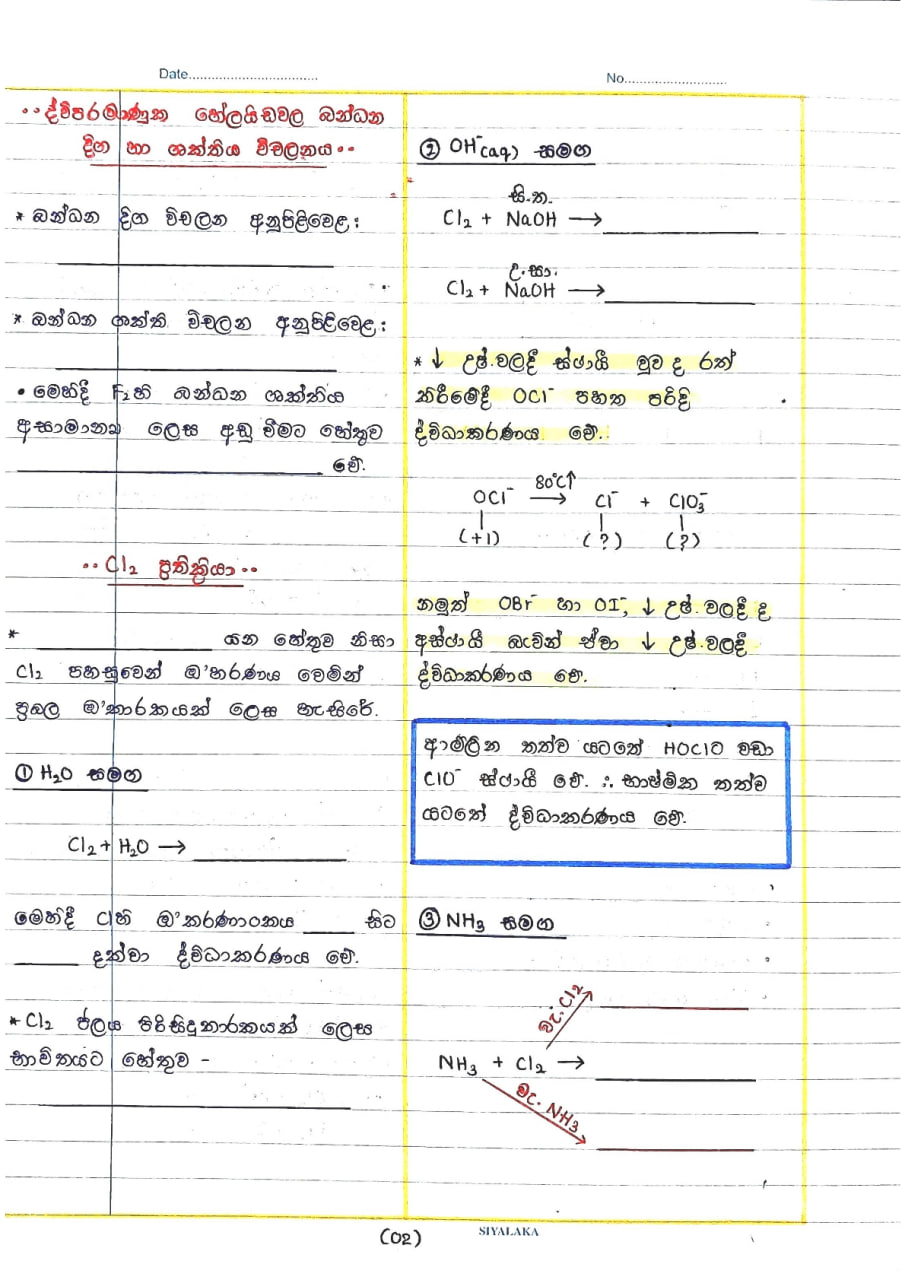 Date................................
No..........................
··ද්විපරමාණුක හේලයිඩවල බන්ධන
දිග හා ශක්තිය විචලනය··
* බන්ධන දිග විචලන අනුපිළිවෙළ:
* බන්ධන ශක්ති විචලන අනුපිළිවෙළ:
• මෙහිදී F₂හි බන්ධන ශක්තිය
අසාමාන්‍ය ලෙස අඩු වීමට හේතුව
වේ.
··Cl₂ ප්‍රතික්‍රියා··
* ____________ යන හේතුව නිසා
Cl₂ පහසුවෙන් ඔ'හරණය වෙමින්
ප්‍රබල ඔ'කාරකයක් ලෙස හැසිරේ.
① H₂O සමග
Cl₂ + H₂O → ____________
මෙහිදී Clහි ඔ'කරණාංකය ____ සිට
_____ දක්වා ද්විධාකරණය වේ.
* Cl₂ ජලය පිරිසිදුකාරකයක් ලෙස
භාවිතයට හේතුව -
② OH⁻(aq) සමග
සි.ත.
Cl₂ + NaOH → ____________
උ.සා.
Cl₂ + NaOH → ____________
* ↓ උෂ්.වලදී ස්ථායී වුව ද රත්
කිරීමේදී OCl⁻ පහත පරිදි
ද්විධාකරණය වේ.
80°C↑
OCl⁻ → Cl⁻ + ClO₃⁻
(+1) (?) (?)
නමුත් OBr⁻ හා OI⁻, ↓ උෂ්.වලදී ද
අස්ථායී බැවින් ඒවා ↓ උෂ්.වලදී
ද්විධාකරණය වේ.
ආම්ලික තත්ව යටතේ HOClට වඩා
ClO⁻ ස්ථායී වේ. ∴ භාෂ්මික තත්ව
යටතේ ද්විධාකරණය වේ.
③ NH₃ සමග
වැ. Cl₂
NH₃ + Cl₂ → ____________
වැ. NH₃
(02)
SIYALAKA